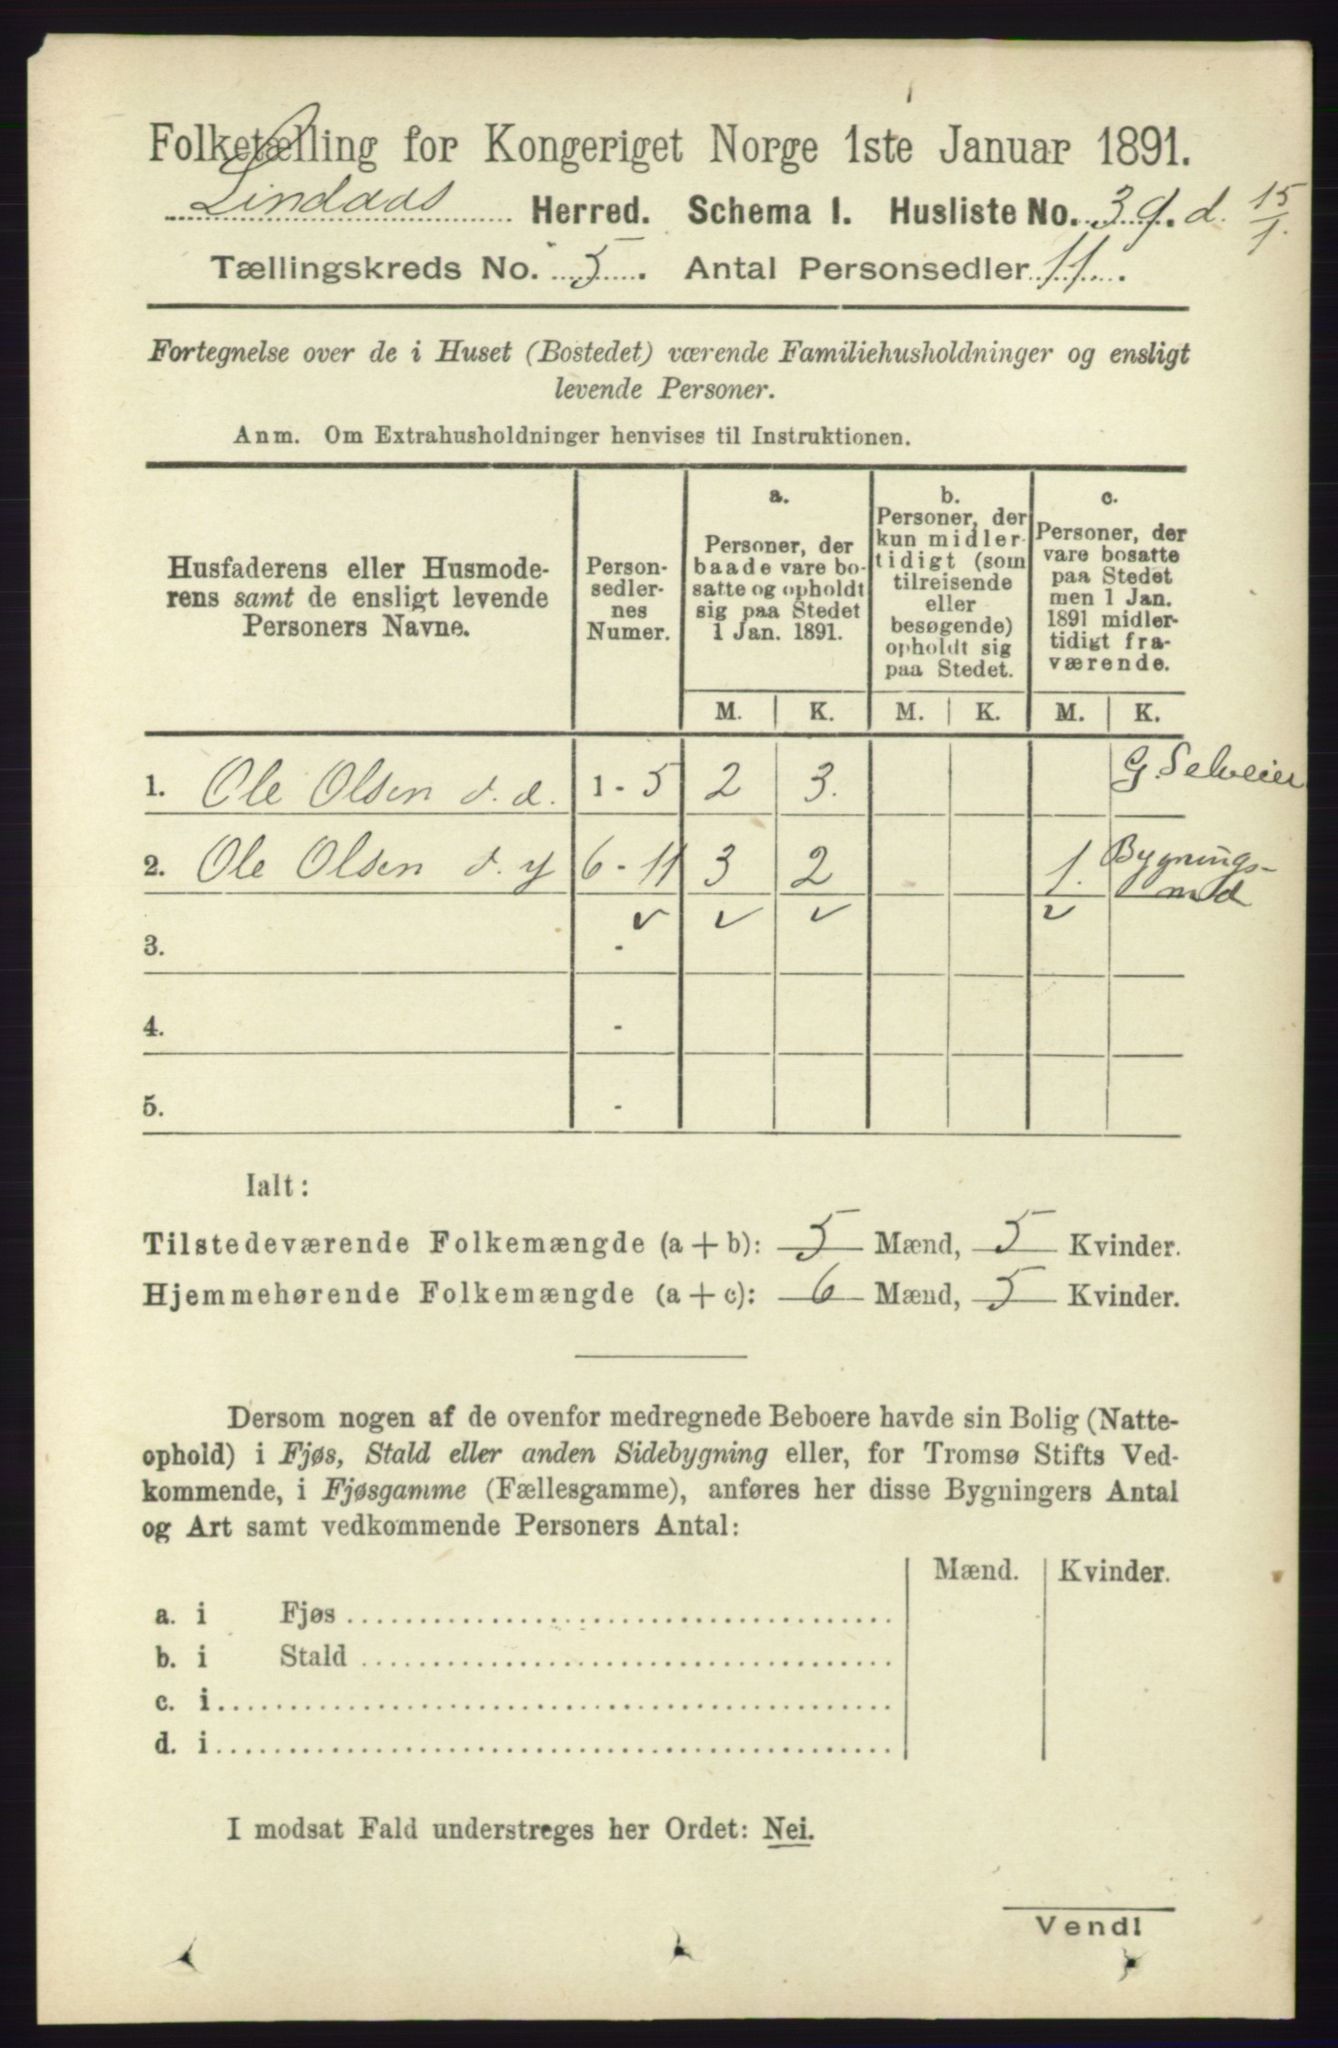 Folketælling for Kongeriget Norge 1ste Januar 1891.
Lindaas Herred. Schema I. Husliste No. 39. d. 15/1.
Tællingskreds No. 5. Antal Personsedler 11.
Fortegnelse over de i Huset (Bostedet) værende Familiehusholdninger og ensligt
levende Personer.
Anm. Om Extrahusholdninger henvises til Instruktionen.
Husfaderens eller Husmode-
rens samt de ensligt levende
Personers Navne.
Person-
sedler-
nes
Numer.
a.
Personer, der
baade vare bo-
satte og opholdt
sig paa Stedet
1 Jan. 1891.
b.
Personer, der
kun midler-
tidigt (som
tilreisende
eller
besøgende)
opholdt sig
paa Stedet.
c.
Personer, der
vare bosatte
paa Stedet
men 1 Jan.
1891 midler-
tidigt fra-
værende.
M. K. M. K. M. K.
1. Ole Olsen d. æ. 1 - 5 2 3. G. Selveier
2. Ole Olsen d. y 6 - 11 3 2 1. Bygnings-
md
3. -
4. -
5. -
Ialt:
Tilstedeværende Folkemængde (a + b): 5 Mænd, 5 Kvinder.
Hjemmehørende Folkemængde (a + c): 6 Mænd, 5 Kvinder.
Dersom nogen af de ovenfor medregnede Beboere havde sin Bolig (Natte-
ophold) i Fjøs, Stald eller anden Sidebygning eller, for Tromsø Stifts Ved-
kommende, i Fjøsgamme (Fællesgamme), anføres her disse Bygningers Antal
og Art samt vedkommende Personers Antal:
Mænd. Kvinder.
a. i Fjøs
b. i Stald
c. i
d. i
I modsat Fald understreges her Ordet: Nei.
Vend!